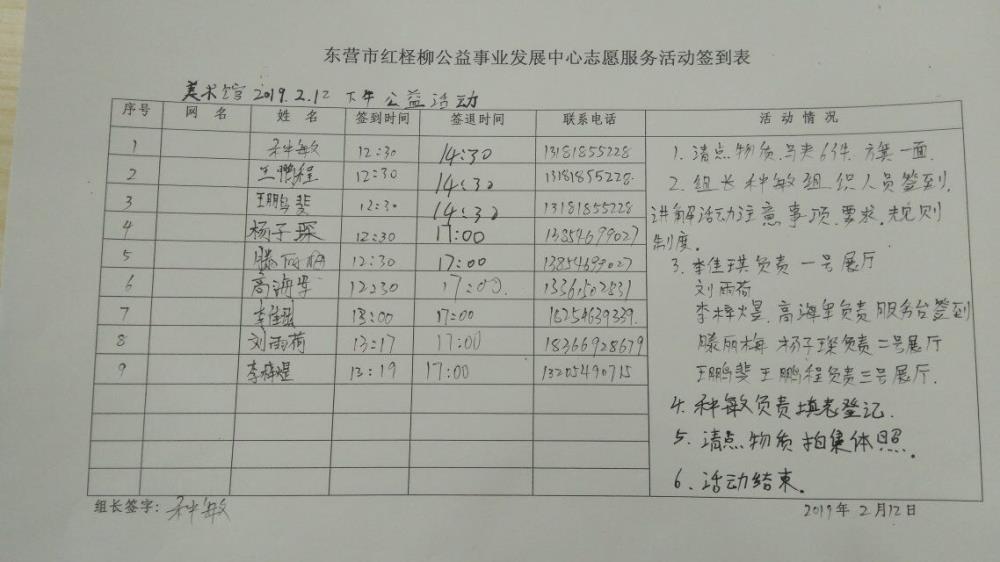 东营市红柽柳公益事业发展中心志愿服务活动签到表
美术馆 2019.2.12 下午公益活动
序号 网名 姓名 签到时间 签退时间 联系电话 活动情况
1 种敏 12:30 14:30 13181855228
2 王鹏程 12:30 14:30 13181855228.
3 王鹏斐 12:30 14:30 13181855228
4 杨子琛 12:30 17:00 13854699027
5 滕丽梅 12:30 17:00 13854699027
6 高海 12:30 17:00. 1336
7 李佳琪 13:00 17:00
8 刘雨荷 13:17 17:00 18366928679
9 李梓煜 13:19 17:00 13205490715
1. 清点物质.马夹6件. 方案一面.
2. 组长种敏组织人员签到.
讲解活动注意事项.要求.规则
制度.
3. 李佳琪负责一号展厅
刘雨荷
李梓煜.高海 负责服务台签到
滕丽梅 杨子琛负责二号展厅
王鹏斐 王鹏程负责三号展厅.
4. 种敏负责填表登记.
5. 清点物质拍集体照.
6. 活动结束.
组长签字: 种敏
2019年2月12日